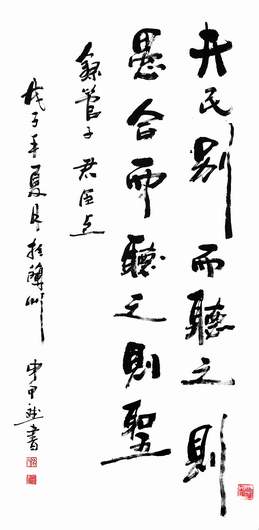 夫民别而聽之則
愚合而聽之則聖
錄管子君臣上
戊子年夏月於州甲書